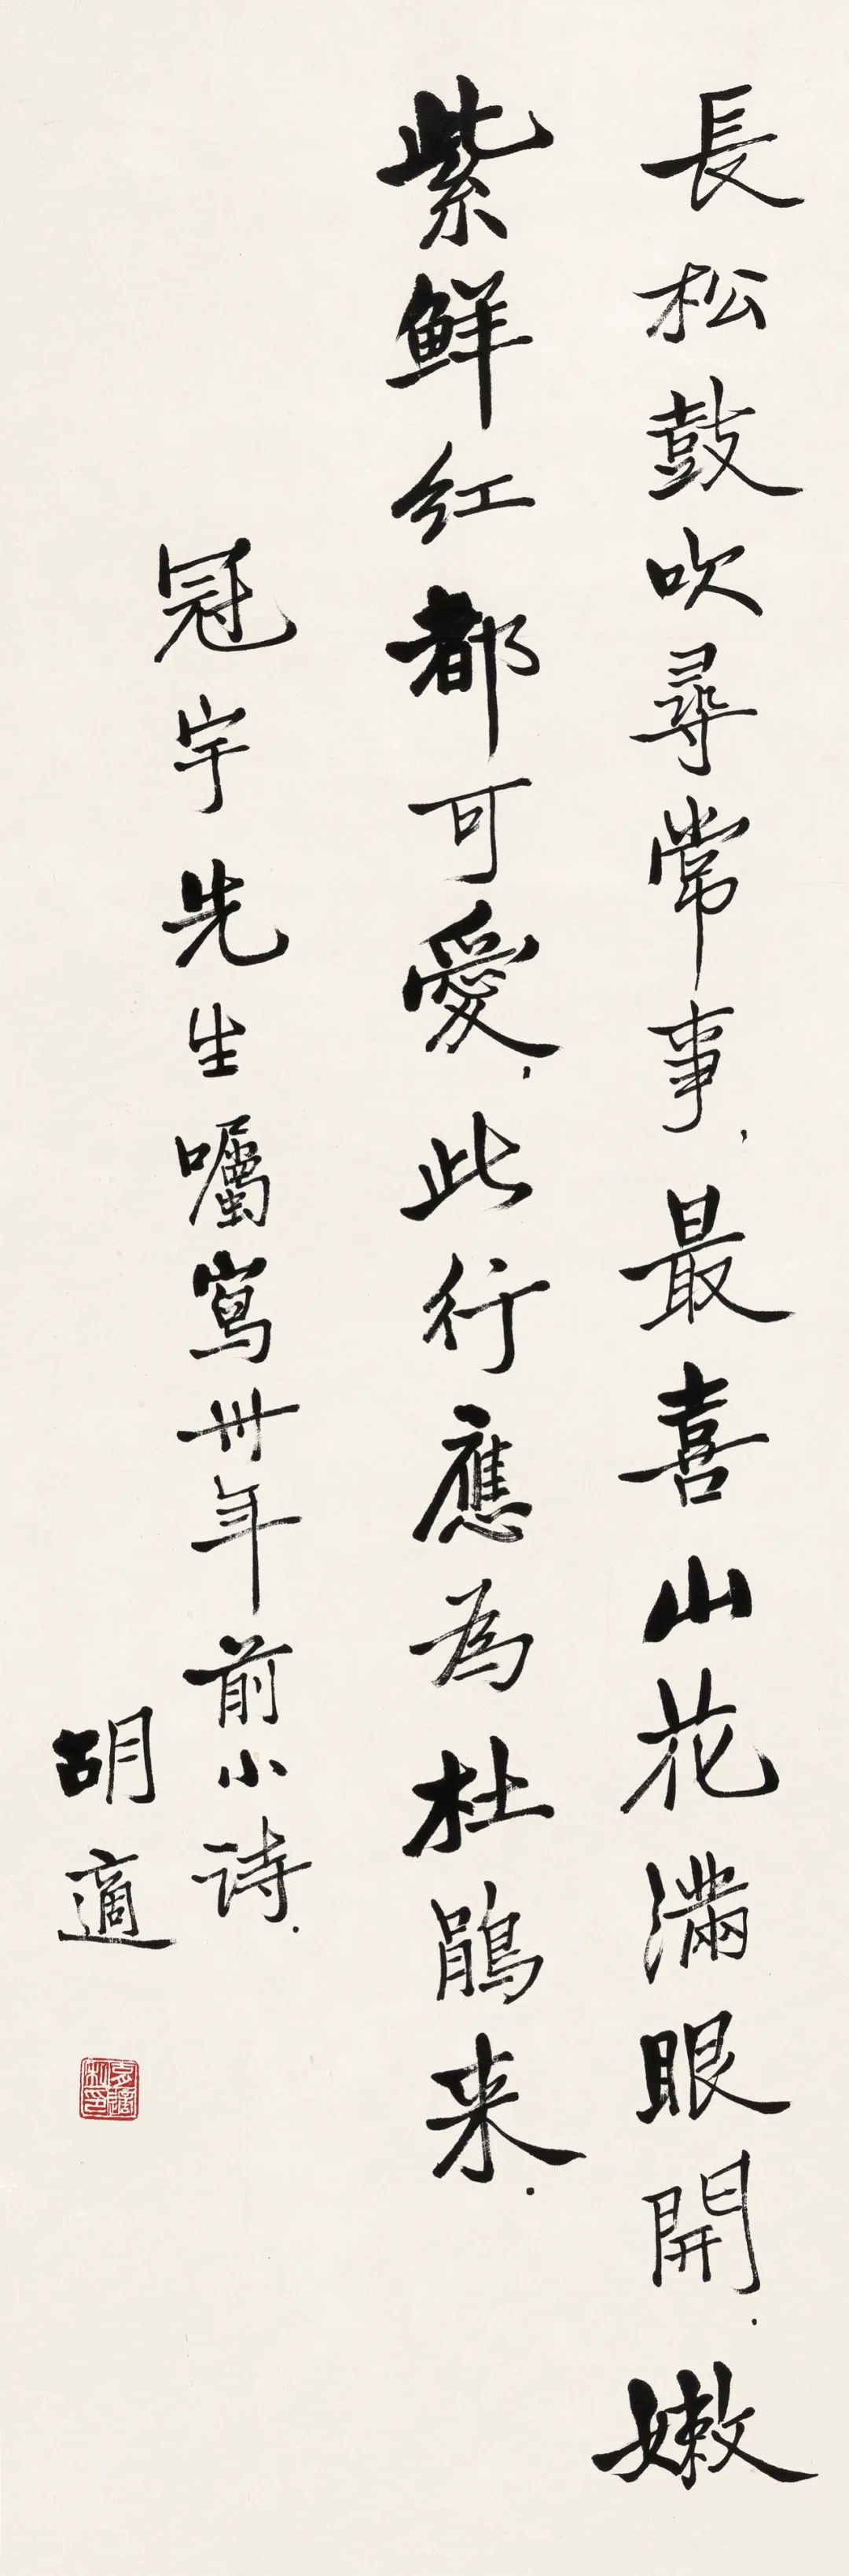 長松鼓吹尋常事，最喜山花滿眼開．嫩
紫鲜红都可愛，此行應為杜鵑来．
冠宇先生囑寫卅年前小诗．
胡適